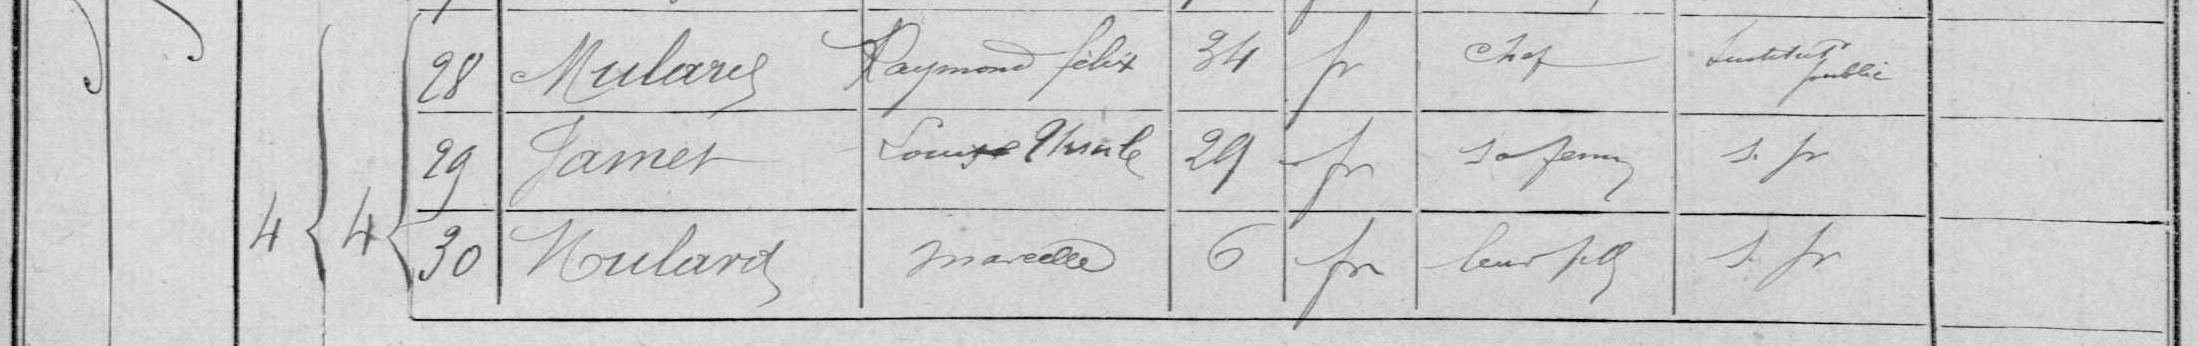 28 Mulard Raymond félix 34 fr chef Institut public
29 Jamet Louise 29 fr sa femme s. pr
4 4 30 Mulard marcelle 6 fr leur fille s. pr